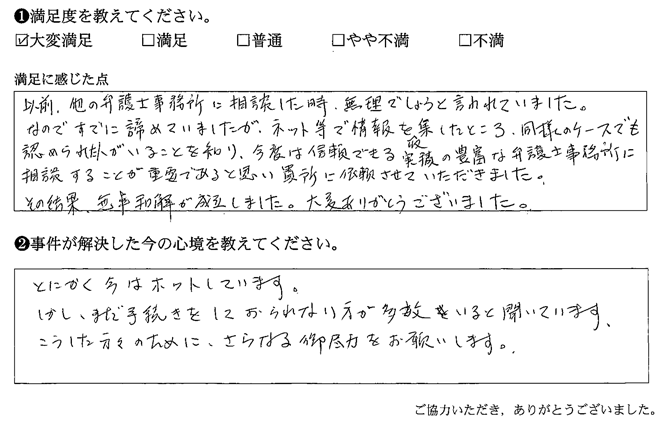 ❶満足度を教えてください。
☑大変満足 □満足 □普通 □やや不満 □不満
満足に感じた点
以前、他の弁護士事務所に相談した時、無理でしょうと言われていました。
なのですでに諦めていましたが、ネット等で情報を収集したところ、同様のケースでも
認められた人がいることを知り、今度は信頼できる実績の豊富な弁護士事務所に
相談することが重要であると思い貴所に依頼させていただきました。
その結果、無事和解が成立しました。大変ありがとうございました。
❷事件が解決した今の心境を教えてください。
とにかく今はホットしています。
しかし、まだ手続きをしておられない方が多数をいると聞いています。
こうした方々のために、さらなる御尽力をお願いします。
ご協力いただき，ありがとうございました。